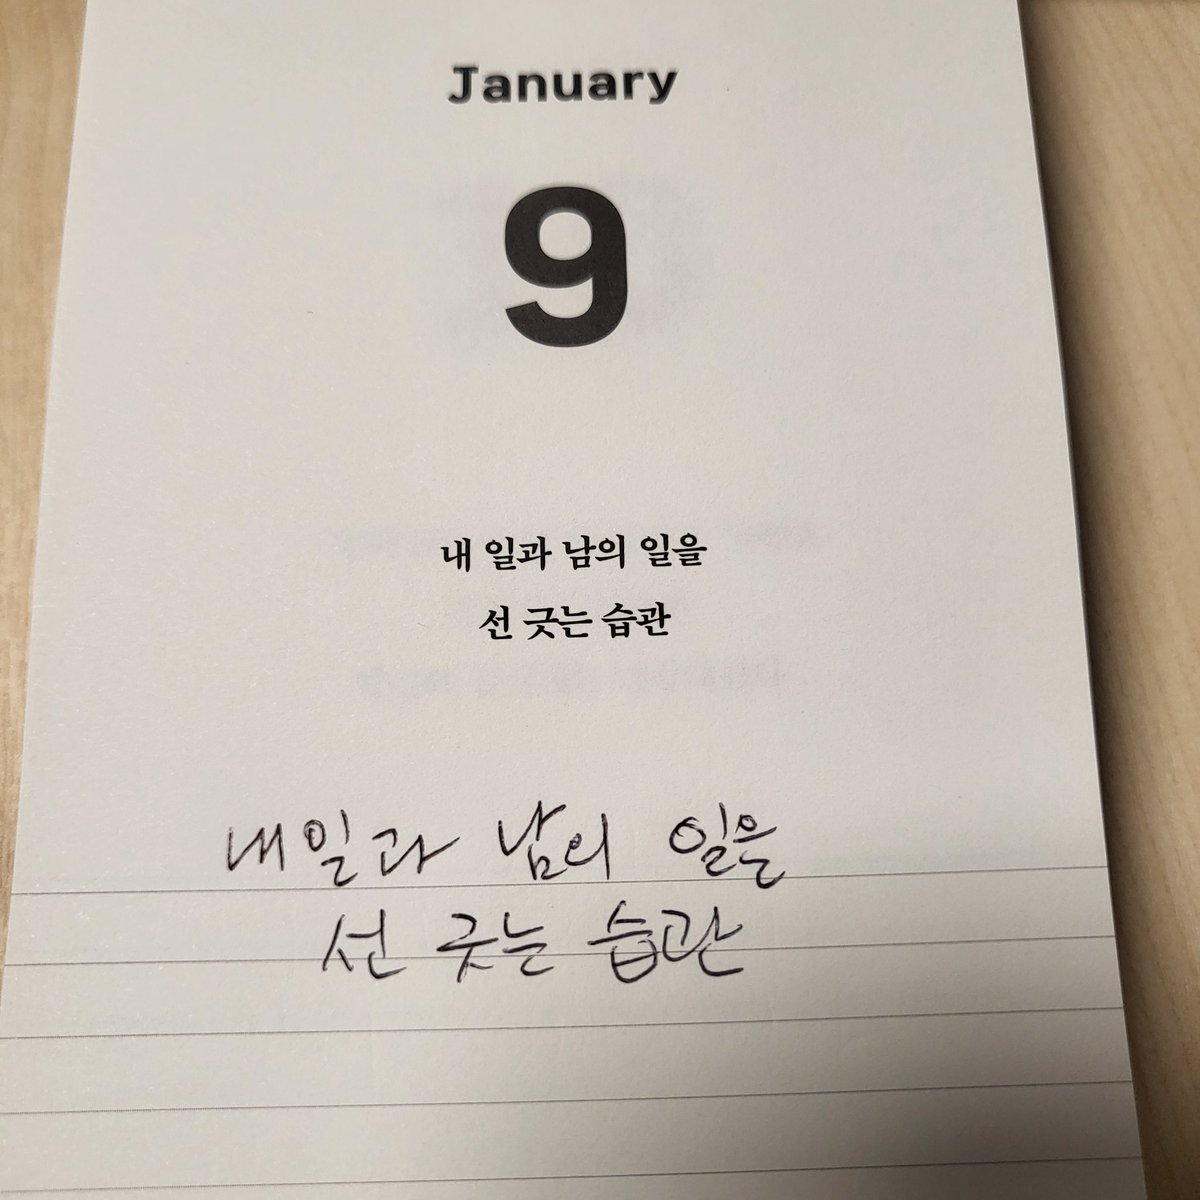 January
9
내 일과 남의 일을
선 긋는 습관
내 일과 남의 일을
선 긋는 습관